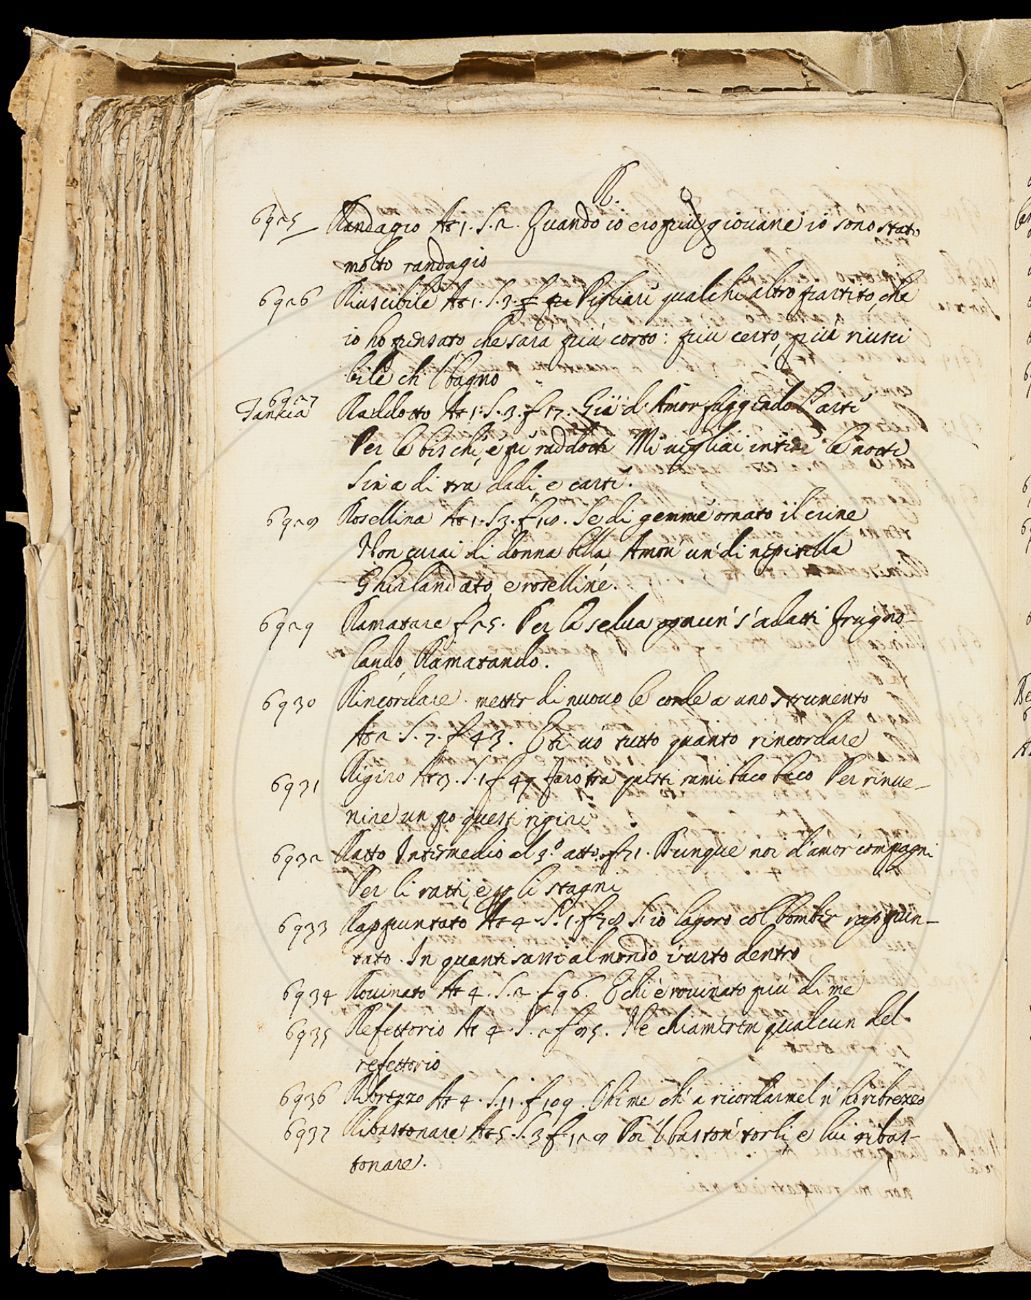 R.
6925 Randagio At 1. S. 2. Quando io ero più giovane io sono stato
molto randagio
6926 Riuscibile At 1. S. 3. Pigliare qualche altro partito che
io ho pensato che sarà più corto: più certo, più riusci
bile ch'l bagno
6927
Tancia Raddotto At 1. S. 3. f 17. Già d'Amor fuggendo l'arti
Per le bische, e pe' raddotti Mi vegliai intere le notti
Sin a di tra dadi, e carte.
6928 Rosellina At 1. S 3. f 18. Se di gemme ornato il crine
Non curai di donna bella Amon un di nepitella
Ghirlandato, e roselline.
6929 Ramatare f 25. Per la selva ognun s'adatti Frugno-
lando, Ramatando.
6930 Rincordare. metter di nuovo le corde a uno strumento
At 2. S. 7. f 43. E ti vo tutto quanto rincordare
6931 Rigiro At 3. S. 1 f 49 farò tra questi rami baco baco Per rinve-
nire un po questi rigiri
6932 Ratto Intermedio al 3.º atto. f 71. Dunque noi d'amor compagni
Per li ratti, e p li stagni
6933 Rappuntato At 4. S. 1. f 78 S'io lavoro col bomber rappun-
tato. In quanti sassi al mondo
6934 Rovinato At 4. S. 2. f 96. E chi è rovinato più di me
6935 Refettorio At 4. S. 2 f 95. Ne chiamerem qualcun del
refettorio
6936 Ribrezzo At 4. S. 11. f 109. Ohime ch' a ricordarmel n' ho ribrezzo
6937 Ribastonare At 5. S. 3 f 128 Poi 'l baston torli e lui ribas-
tonare.